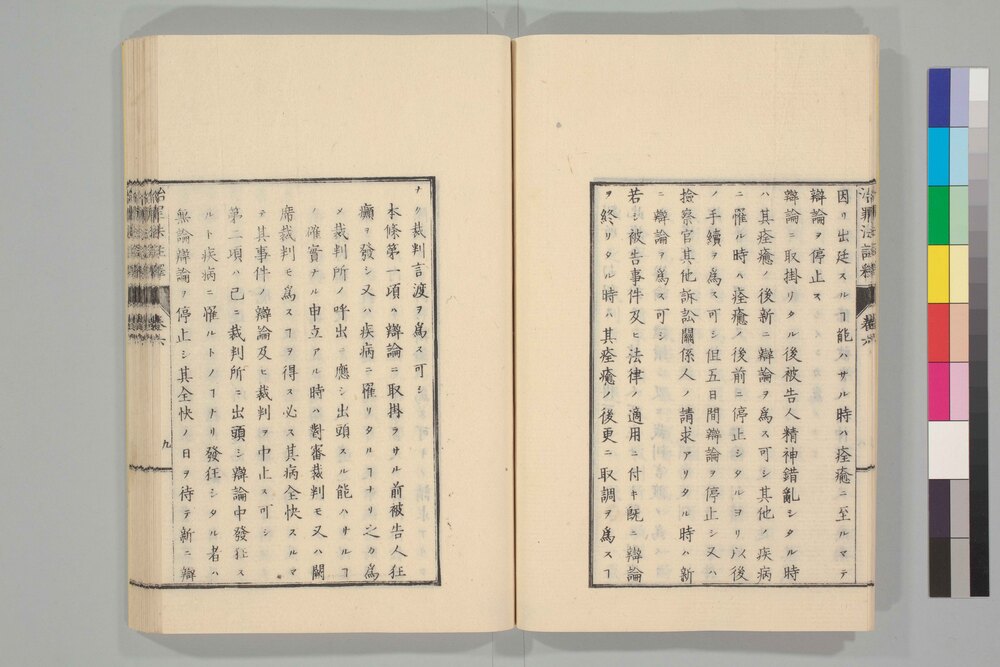 因リ出廷スルヿ能ハサル時ハ痊癒ニ至ルマテ
辯論ヲ停止ス
辯論ニ取掛リタル後被告人精神錯亂シタル時
ハ其痊癒ノ後新ニ辯論ヲ爲ス可シ其他ノ疾病
ニ罹ル時ハ痊癒ノ後前ニ停止シタルヨリ以後
ノ手續ヲ爲ス可シ但五日間辯論ヲ停止シ又ハ
檢察官其他訴訟關係人ノ請求アリタル時ハ新
ニ辯論ヲ爲ス可シ
若シ被告事件及ヒ法律ノ適用ニ付キ既ニ辯論
ヲ終リタル時ハ其痊癒ノ後更ニ取調ヲ爲スヿ
ナク裁判言渡ヲ爲ス可シ
本條第一項ハ辯論ニ取掛ラサル前被告人狂
癲ヲ發シ又ハ疾病ニ罹リタルヿナリ之カ爲
メ裁判所ノ呼出ニ應シ出頭スル能ハサルヿ
ノ確實ナル申立アル時ハ對審裁判モ又ハ闕
席裁判モ爲スヿヲ得ス必ス其病全快スルマ
テ其事件ノ辯論及ヒ裁判ヲ中止ス可シ
第二項ハ已ニ裁判所ニ出頭シ辯論中發狂ス
ルト疾病ニ罹ルトノヿナリ發狂シタル者ハ
無論辯論ヲ停止シ其全快ノ日ヲ待テ新ニ辯
治罪法註釋 卷六
九